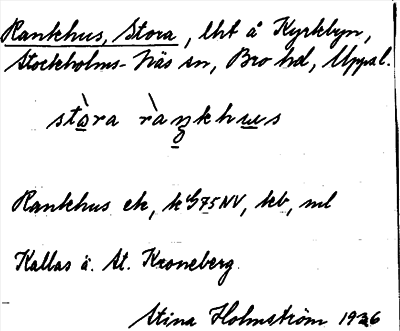 Rankhus, Stora, lht å Kyrkbyn,
Stockholms-Näs sn, Bro hd, Uppsal.
stòra ràŋkhus
Rankhus ek, k G75NV, kb, ml
Kallas ä. St. Kroneberg
Stina Holmström 1926